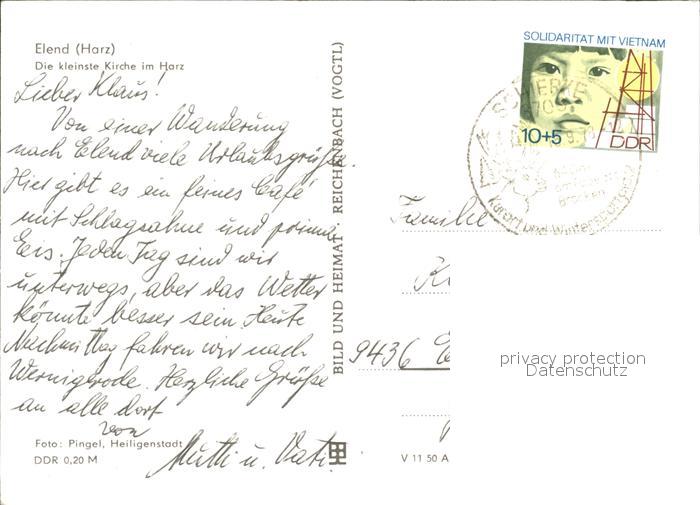 Elend (Harz)
Die kleinste Kirche im Harz
Lieber Klaus!
Von einer Wanderung
nach Elend viele Urlaubsgrüße.
Hier gibt es ein feines Café
mit Schlagsahne und prima
Eis. Jeden Tag sind wir
unterwegs, aber das Wetter
könnte besser sein. Heute
Nachmittag fahren wir nach
Wernigerode. Herzliche Grüße
an alle dort
von
Mutti u. Vati.
Foto: Pingel, Heiligenstadt
DDR 0,20 M
BILD UND HEIMAT REICHENBACH (VOGTL)
V 11 50 A
SOLIDARITÄT MIT VIETNAM
10+5
DDR
SCHIERKE
3709
am Fuße des
Brocken
Kurort und Wintersportplatz
Familie
9436
privacy protection
Datenschutz